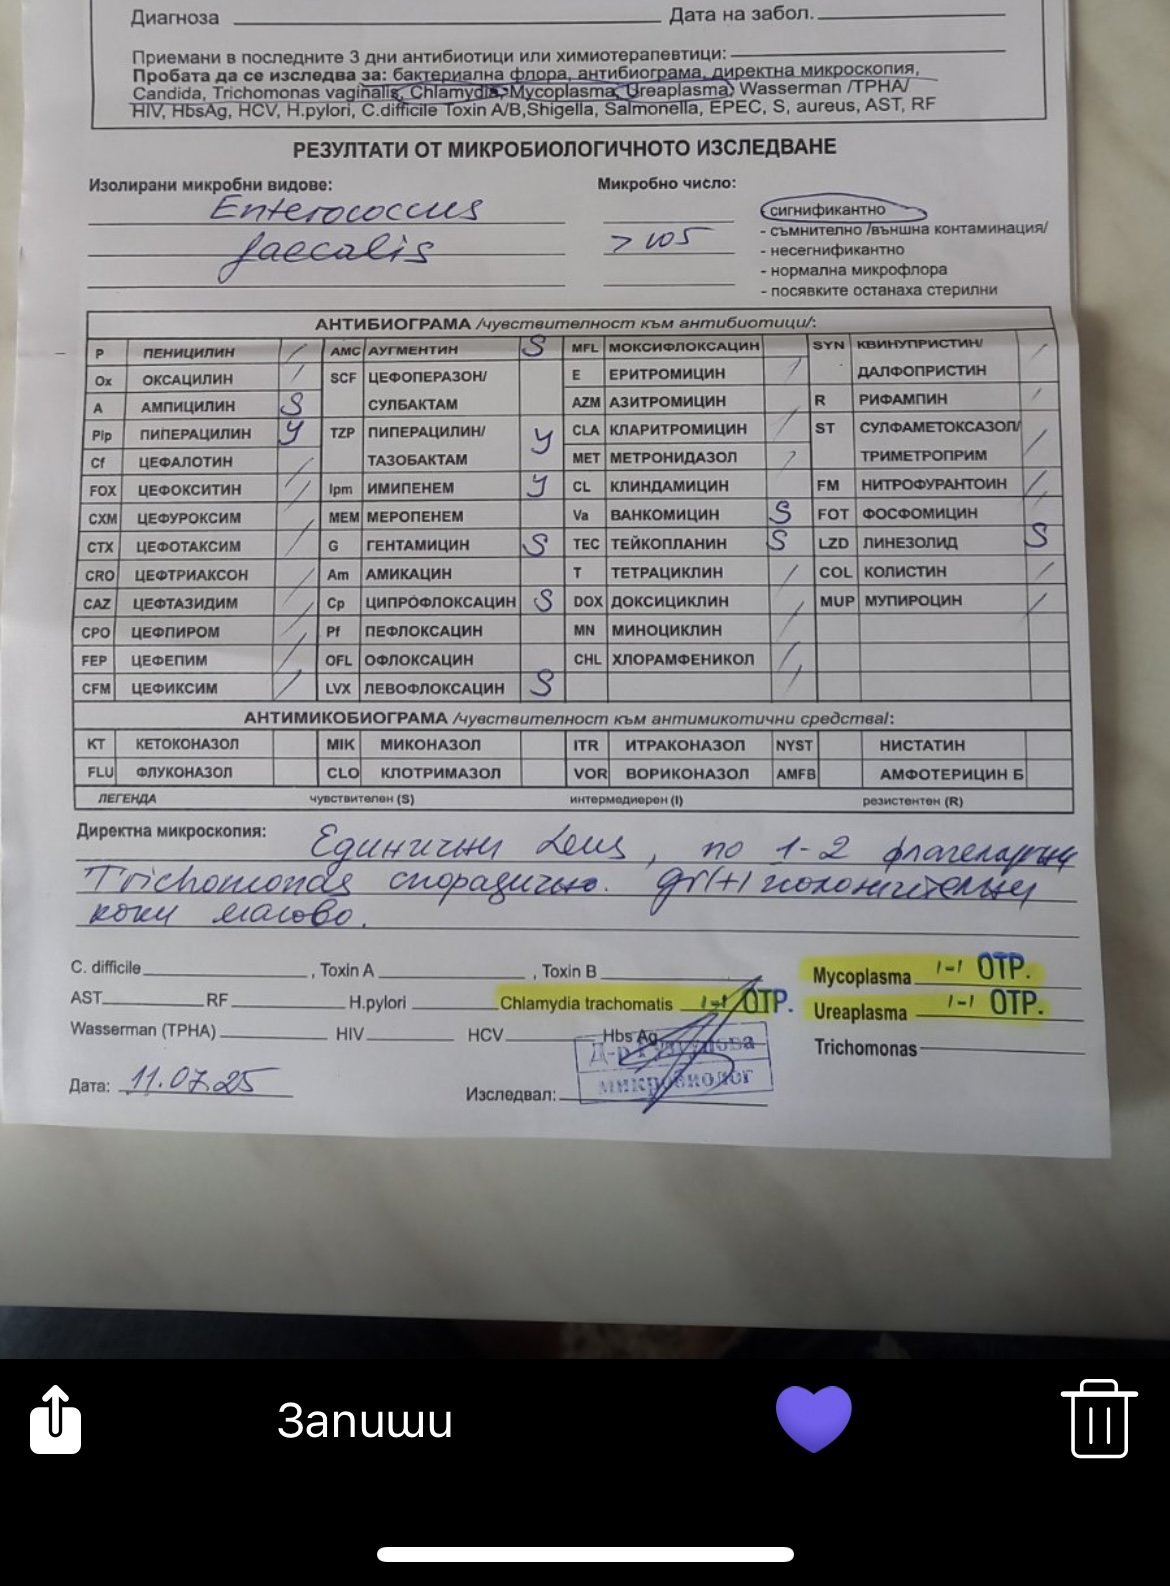 Диагноза
Дата на забол.
Приемани в последните 3 дни антибиотици или химиотерапевтици:
Пробата да се изследва за: бактериална флора, антибиограма, директна микроскопия,
Candida, Trichomonas vaginalis, Chlamydia, Mycoplasma, Ureaplasma, Wasserman /TPHA/
HIV, HbsAg, HCV, H.pylori, C.difficile Toxin A/B,Shigella, Salmonella, EPEC, S, aureus, AST, RF
РЕЗУЛТАТИ ОТ МИКРОБИОЛОГИЧНОТО ИЗСЛЕДВАНЕ
Изолирани микробни видове: Микробно число:
Enterococcus сигнификантно
faecalis > 105 - съмнително /външна контаминация/
- несегнификантно
- нормална микрофлора
- посявките останаха стерилни
АНТИБИОГРАМА /чувствителност към антибиотици/:
P ПЕНИЦИЛИН / AMC АУГМЕНТИН S MFL МОКСИФЛОКСАЦИН SYN КВИНУПРИСТИН/ /
ДАЛФОПРИСТИН
Ox ОКСАЦИЛИН / SCF ЦЕФОПЕРАЗОН/ E ЕРИТРОМИЦИН /
A АМПИЦИЛИН S СУЛБАКТАМ AZM АЗИТРОМИЦИН R РИФАМПИН /
Pip ПИПЕРАЦИЛИН У TZP ПИПЕРАЦИЛИН/ У CLA КЛАРИТРОМИЦИН / ST СУЛФАМЕТОКСАЗОЛ/ /
Cf ЦЕФАЛОТИН / ТАЗОБАКТАМ MET МЕТРОНИДАЗОЛ / ТРИМЕТРОПРИМ
FOX ЦЕФОКСИТИН / Ipm ИМИПЕНЕМ У CL КЛИНДАМИЦИН FM НИТРОФУРАНТОИН /
CXM ЦЕФУРОКСИМ MEM МЕРОПЕНЕМ Va ВАНКОМИЦИН S FOT ФОСФОМИЦИН /
CTX ЦЕФОТАКСИМ / G ГЕНТАМИЦИН S TEC ТЕЙКОПЛАНИН S LZD ЛИНЕЗОЛИД S
CRO ЦЕФТРИАКСОН / Am АМИКАЦИН T ТЕТРАЦИКЛИН / COL КОЛИСТИН /
CAZ ЦЕФТАЗИДИМ / Cp ЦИПРОФЛОКСАЦИН S DOX ДОКСИЦИКЛИН / MUP МУПИРОЦИН /
CPO ЦЕФПИРОМ / Pf ПЕФЛОКСАЦИН MN МИНОЦИКЛИН
FEP ЦЕФЕПИМ / OFL ОФЛОКСАЦИН CHL ХЛОРАМФЕНИКОЛ /
CFM ЦЕФИКСИМ / LVX ЛЕВОФЛОКСАЦИН S /
АНТИМИКОБИОГРАМА /чувствителност към антимикотични средства/:
KT КЕТОКОНАЗОЛ MIK МИКОНАЗОЛ ITR ИТРАКОНАЗОЛ NYST НИСТАТИН
FLU ФЛУКОНАЗОЛ CLO КЛОТРИМАЗОЛ VOR ВОРИКОНАЗОЛ AMFB АМФОТЕРИЦИН Б
ЛЕГЕНДА чувствителен (S) интермедиерен (I) резистентен (R)
Директна микроскопия: Единични Leus, по 1-2 флагеларни
Trichomonas спорадично. gr(+) положителни
коки масово.
C. difficile , Toxin A , Toxin B Mycoplasma /-/ ОТР.
AST RF H.pylori Chlamydia trachomatis /-/ ОТР. Ureaplasma /-/ ОТР.
Wasserman (TPHA) HIV HCV Hbs Ag Trichomonas
Д-р
микробиолог
Дата: 11.07.25 Изследвал:
Запиши